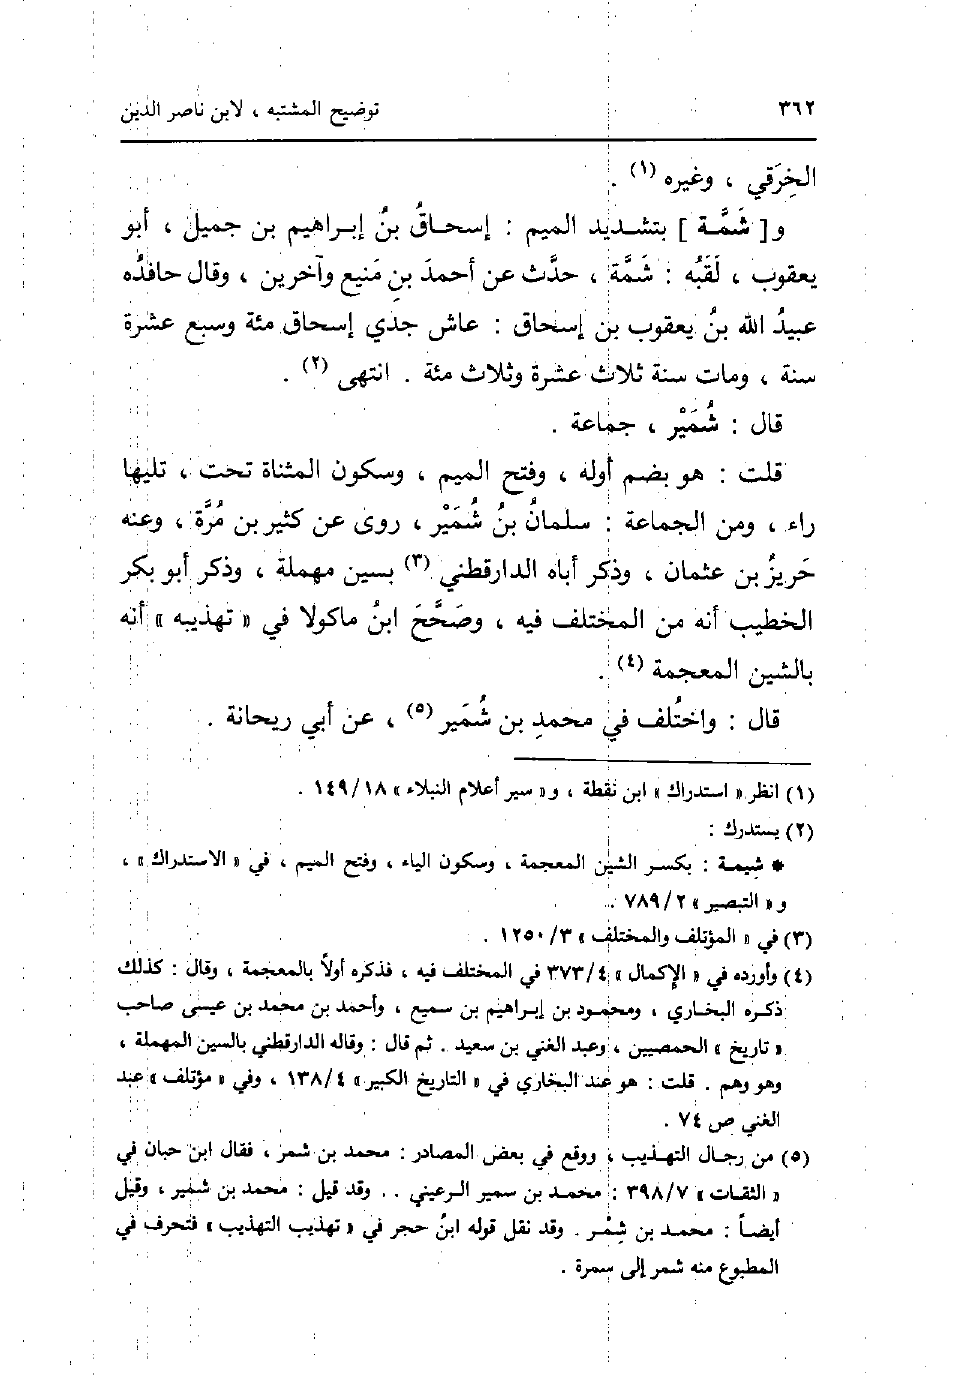 ٣٦٢ توضيح المشتبه ، لابن ناصر الدين
الخِرَقي ، وغيره (١) .
و[ شَمَّة ] بتشديد الميم : إسحاقُ بنُ إبراهيم بن جميل ، أبو
يعقوب ، لَقَبُه : شَمَّة ، حدَّث عن أحمدَ بنِ مَنيع وآخرين ، وقال حافدُه
عبيدُ الله بنُ يعقوب بن إسحاق : عاش جدي إسحاق مئة وسبع عشرة
سنة ، ومات سنة ثلاث عشرة وثلاث مئة . انتهى (٢) .
قال : شُمَيْر ، جماعة .
قلت : هو بضم أوله ، وفتح الميم ، وسكون المثناة تحت ، تليها
راء ، ومن الجماعة : سلمانُ بنُ شُمَيْر ، روى عن كثير بن مُرَّة ، وعنه
حَريزُ بن عثمان ، وذكر أباه الدارقطني (٣) بسين مهملة ، وذكر أبو بكر
الخطيب أنه من المختلف فيه ، وصَحَّحَ ابنُ ماكولا في « تهذيبه » أنه
بالشين المعجمة (٤) .
قال : واختُلف في محمدِ بن شُمَير (٥) ، عن أبي ريحانة .
(١) انظر « استدراك » ابن نقطة ، و« سير أعلام النبلاء » ١٤٩/١٨ .
(٢) يستدرك :
* شِيمة : بكسر الشين المعجمة ، وسكون الياء ، وفتح الميم ، في « الاستدراك » ،
و « التبصير » ٧٨٩/٢ .
(٣) في « المؤتلف والمختلف » ١٢٥٠/٣ .
(٤) وأورده في « الإكمال » ٣٧٣/٤ في المختلف فيه ، فذكره أولاً بالمعجمة ، وقال : كذلك
ذكره البخاري ، ومحمود بن إبراهيم بن سميع ، وأحمد بن محمد بن عيسى صاحب
« تاريخ » الحمصيين ، وعبد الغني بن سعيد . ثم قال : وقاله الدارقطني بالسين المهملة ،
وهو وهم . قلت : هو عند البخاري في « التاريخ الكبير » ١٣٨/٤ ، وفي « مؤتلف » عبد
الغني ص ٧٤ .
(٥) من رجال التهذيب ، ووقع في بعض المصادر : محمد بن شمر ، فقال ابن حبان في
« الثقات » ٣٩٨/٧ : محمد بن سمير الرعيني .. وقد قيل : محمد بن شمير ، وقيل
أيضاً : محمد بن شِمْر . وقد نقل قوله ابنُ حجر في « تهذيب التهذيب » فتحرف في
المطبوع منه شمر إلى سمرة .